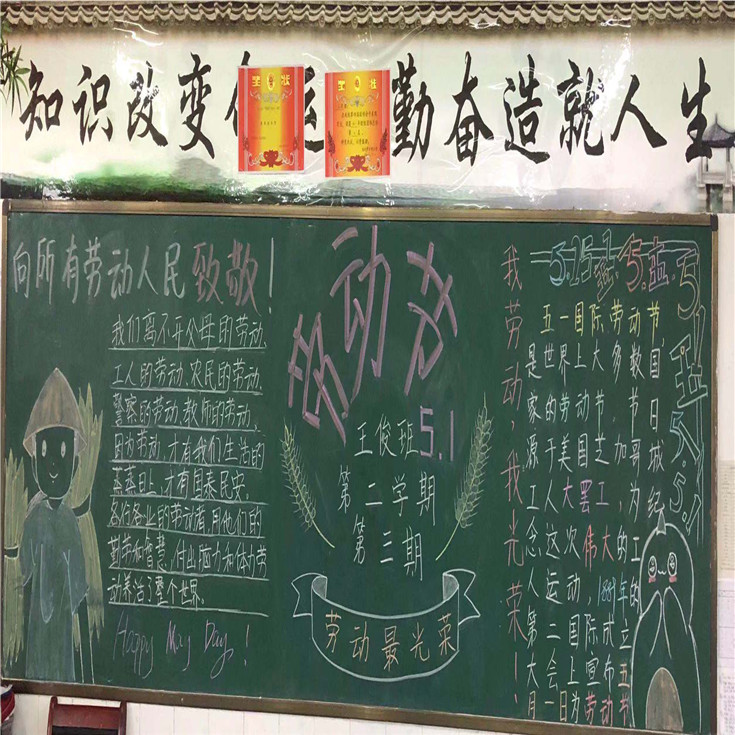 知识改变 运 勤奋造就人生
奖状
奖状
向所有劳动人民致敬!
我们离不开父母的劳动、
工人的劳动、农民的劳动、
警察的劳动、教师的劳动,
因为劳动,才有我们生活的
蒸蒸日上,才有国泰民安,
各行各业的劳动者,用他们的
勤劳和智慧,付出脑力和体力劳
动养活了整个世界.
Happy May Day!
劳动节
王俊班5.1
第二学期
第三期
劳动最光荣
我劳动,我光荣!
五一国际劳动节,
是世界上大多数国
家的劳动节 节日
源于美国芝加哥城
工人大罢工,为纪
念这次伟大的工
人运动,1889年的
第二国际成立
大会上宣布五
月一日为劳动节
5.1
五一
5.1
5.1